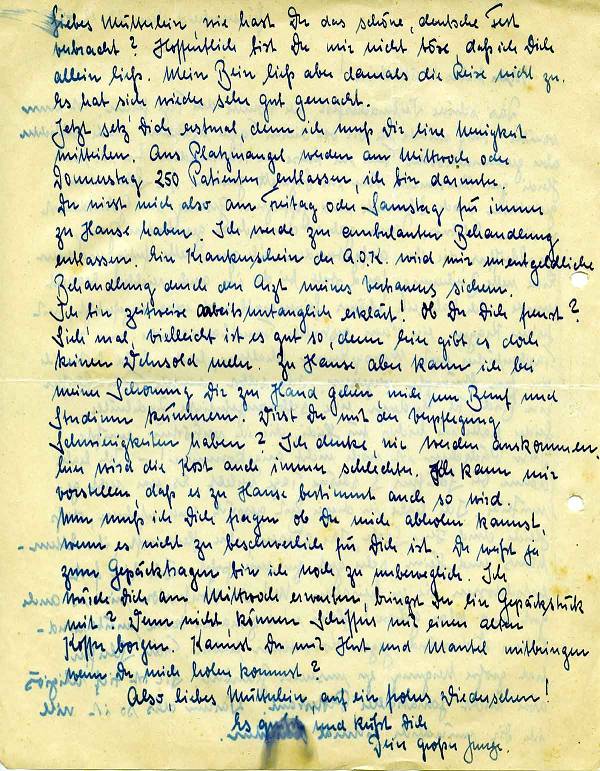 Liebes Mütterlein, wie hast Du das schöne, deutsche Fest
verbracht? Hoffentlich bist Du mir nicht böse, daß ich Dich
allein ließ. Mein Bein ließ aber damals die Reise nicht zu.
Es hat sich wieder sehr gut gemacht.
Jetzt setz' Dich erstmal, denn ich muß Dir eine Neuigkeit
mitteilen. Aus Platzmangel werden am Mittwoch oder
Donnerstag 250 Patienten entlassen, ich bin darunter.
Du wirst mich also am Freitag oder Samstag für immer
zu Hause haben. Ich werde zur ambulanten Behandlung
entlassen. Ein Krankenschein der A.O.K. wird mir unentgeldliche
Behandlung durch den Arzt meines Vertrauens sichern.
Ich bin zeitweise arbeitsuntauglich erklärt! Ob Du Dich freust?
Sieh' mal, vielleicht ist es gut so, denn hier gibt es doch
keinen Wehrsold mehr. Zu Hause aber kann ich bei
meiner Schonung Dir zur Hand gehen, mich um Beruf und
Studium kümmern. Wirst Du mit der Verpflegung
Schwierigkeiten haben? Ich denke, wir werden auskommen,
hier wird die Kost auch immer schlechter. Ich kann mir
vorstellen, daß es zu Hause bestimmt auch so wird.
Nun muß ich Dich fragen ob Du mich abholen kannst,
wenn es nicht zu beschwerlich für Dich ist. Du weißt ja
zum Gepäcktragen bin ich noch zu unbeweglich. Ich
würde Dich am Mittwoch erwarten, bringst Du ein Gepäckstück
mit? Wenn nicht, können Schiffers mir einen alten
Koffer borgen. Kannst Du mir Hut und Mantel mitbringen
wenn Du mich holen kommst?
Also, liebes Mütterlein, auf ein frohes Wiedersehen!
Es grüßt und küßt Dich
Dein großer Junge.